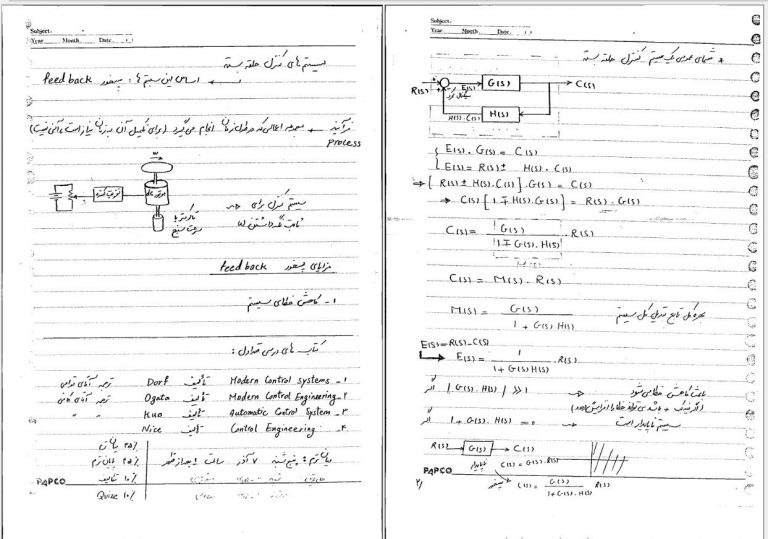 Subject.
Year. Month. Date.
سیستم های کنترل حلقه بسته
اساس این سیستم ها : پسخور feed back
فرآیند → مجموعه اعمالی که در طول زمان انجام می گیرد (برای تکمیل آن به زمان نیاز است و آنی نیست)
process
ω
تقویت کننده
موتور
سیستم کنترل برای
ثابت نگه داشتن ω
مزایای پسخور feed back
۱- کاهش خطای سیستم
کتاب های درسی متداول :
۱- Modern Control Systems تألیف Dorf ترجمه آقای
۲- Modern Control Engineering تألیف Ogata ترجمه آقای
۳- Automatic Control System تألیف Kuo
۴- Control Engineering تألیف Nice
پایان ترم : پنج شنبه ۷ آذر ساعت بعد از ظهر
۲۵٪
۱۰٪
Quize ۱۰٪
PAPCO
Subject.
Year. Month. Date.
* شمای عمومی یک سیستم کنترل حلقه بسته
R(s) E(s) G(s) C(s)
H(s).C(s) H(s)
E(s) . G(s) = C(s)
E(s) = R(s) ± H(s) . C(s)
⇒ [R(s) ± H(s).C(s)] .G(s) = C(s)
→ C(s) [1 ∓ H(s).G(s)] = R(s) . G(s)
C(s) = G(s) / 1 ∓ G(s).H(s) . R(s)
C(s) = M(s) . R(s)
M(s) = G(s) / 1 + G(s)H(s) بهره کل تابع تبدیل کل سیستم
E(s) = R(s) - C(s)
E(s) = 1 / 1 + G(s)H(s) . R(s)
اگر |G(s).H(s)| >> 1 → باعث کاهش خطا می شود
اگر 1 + G(s).H(s) = 0 → سیستم ناپایدار است
R(s) → G(s) → C(s)
C(s) = G(s).R(s)
پسخور C(s) = G(s) / 1+G(s).H(s) R(s)
PAPCO